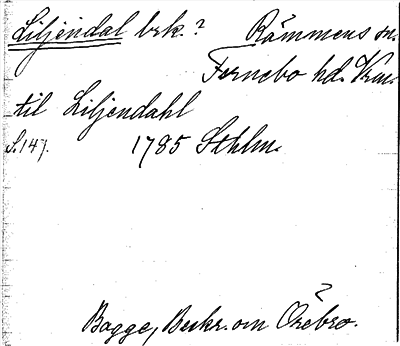 Liljendal brk.? Rämmens sn.
Fernebo hd. Vrm.
til Liljendahl
S. 147. 1785 Sthlm.
Bagge, Beskr. om Örebro.